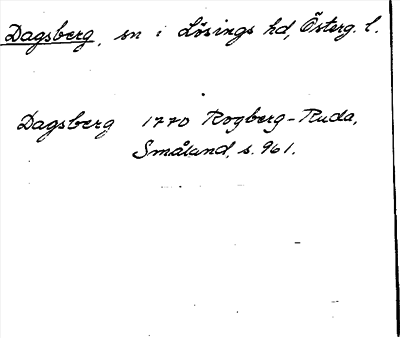 Dagsberg, sn i Lösings hd, Österg. l.
Dagsberg 1770 Rogberg-Ruda,
Småland, s. 961.